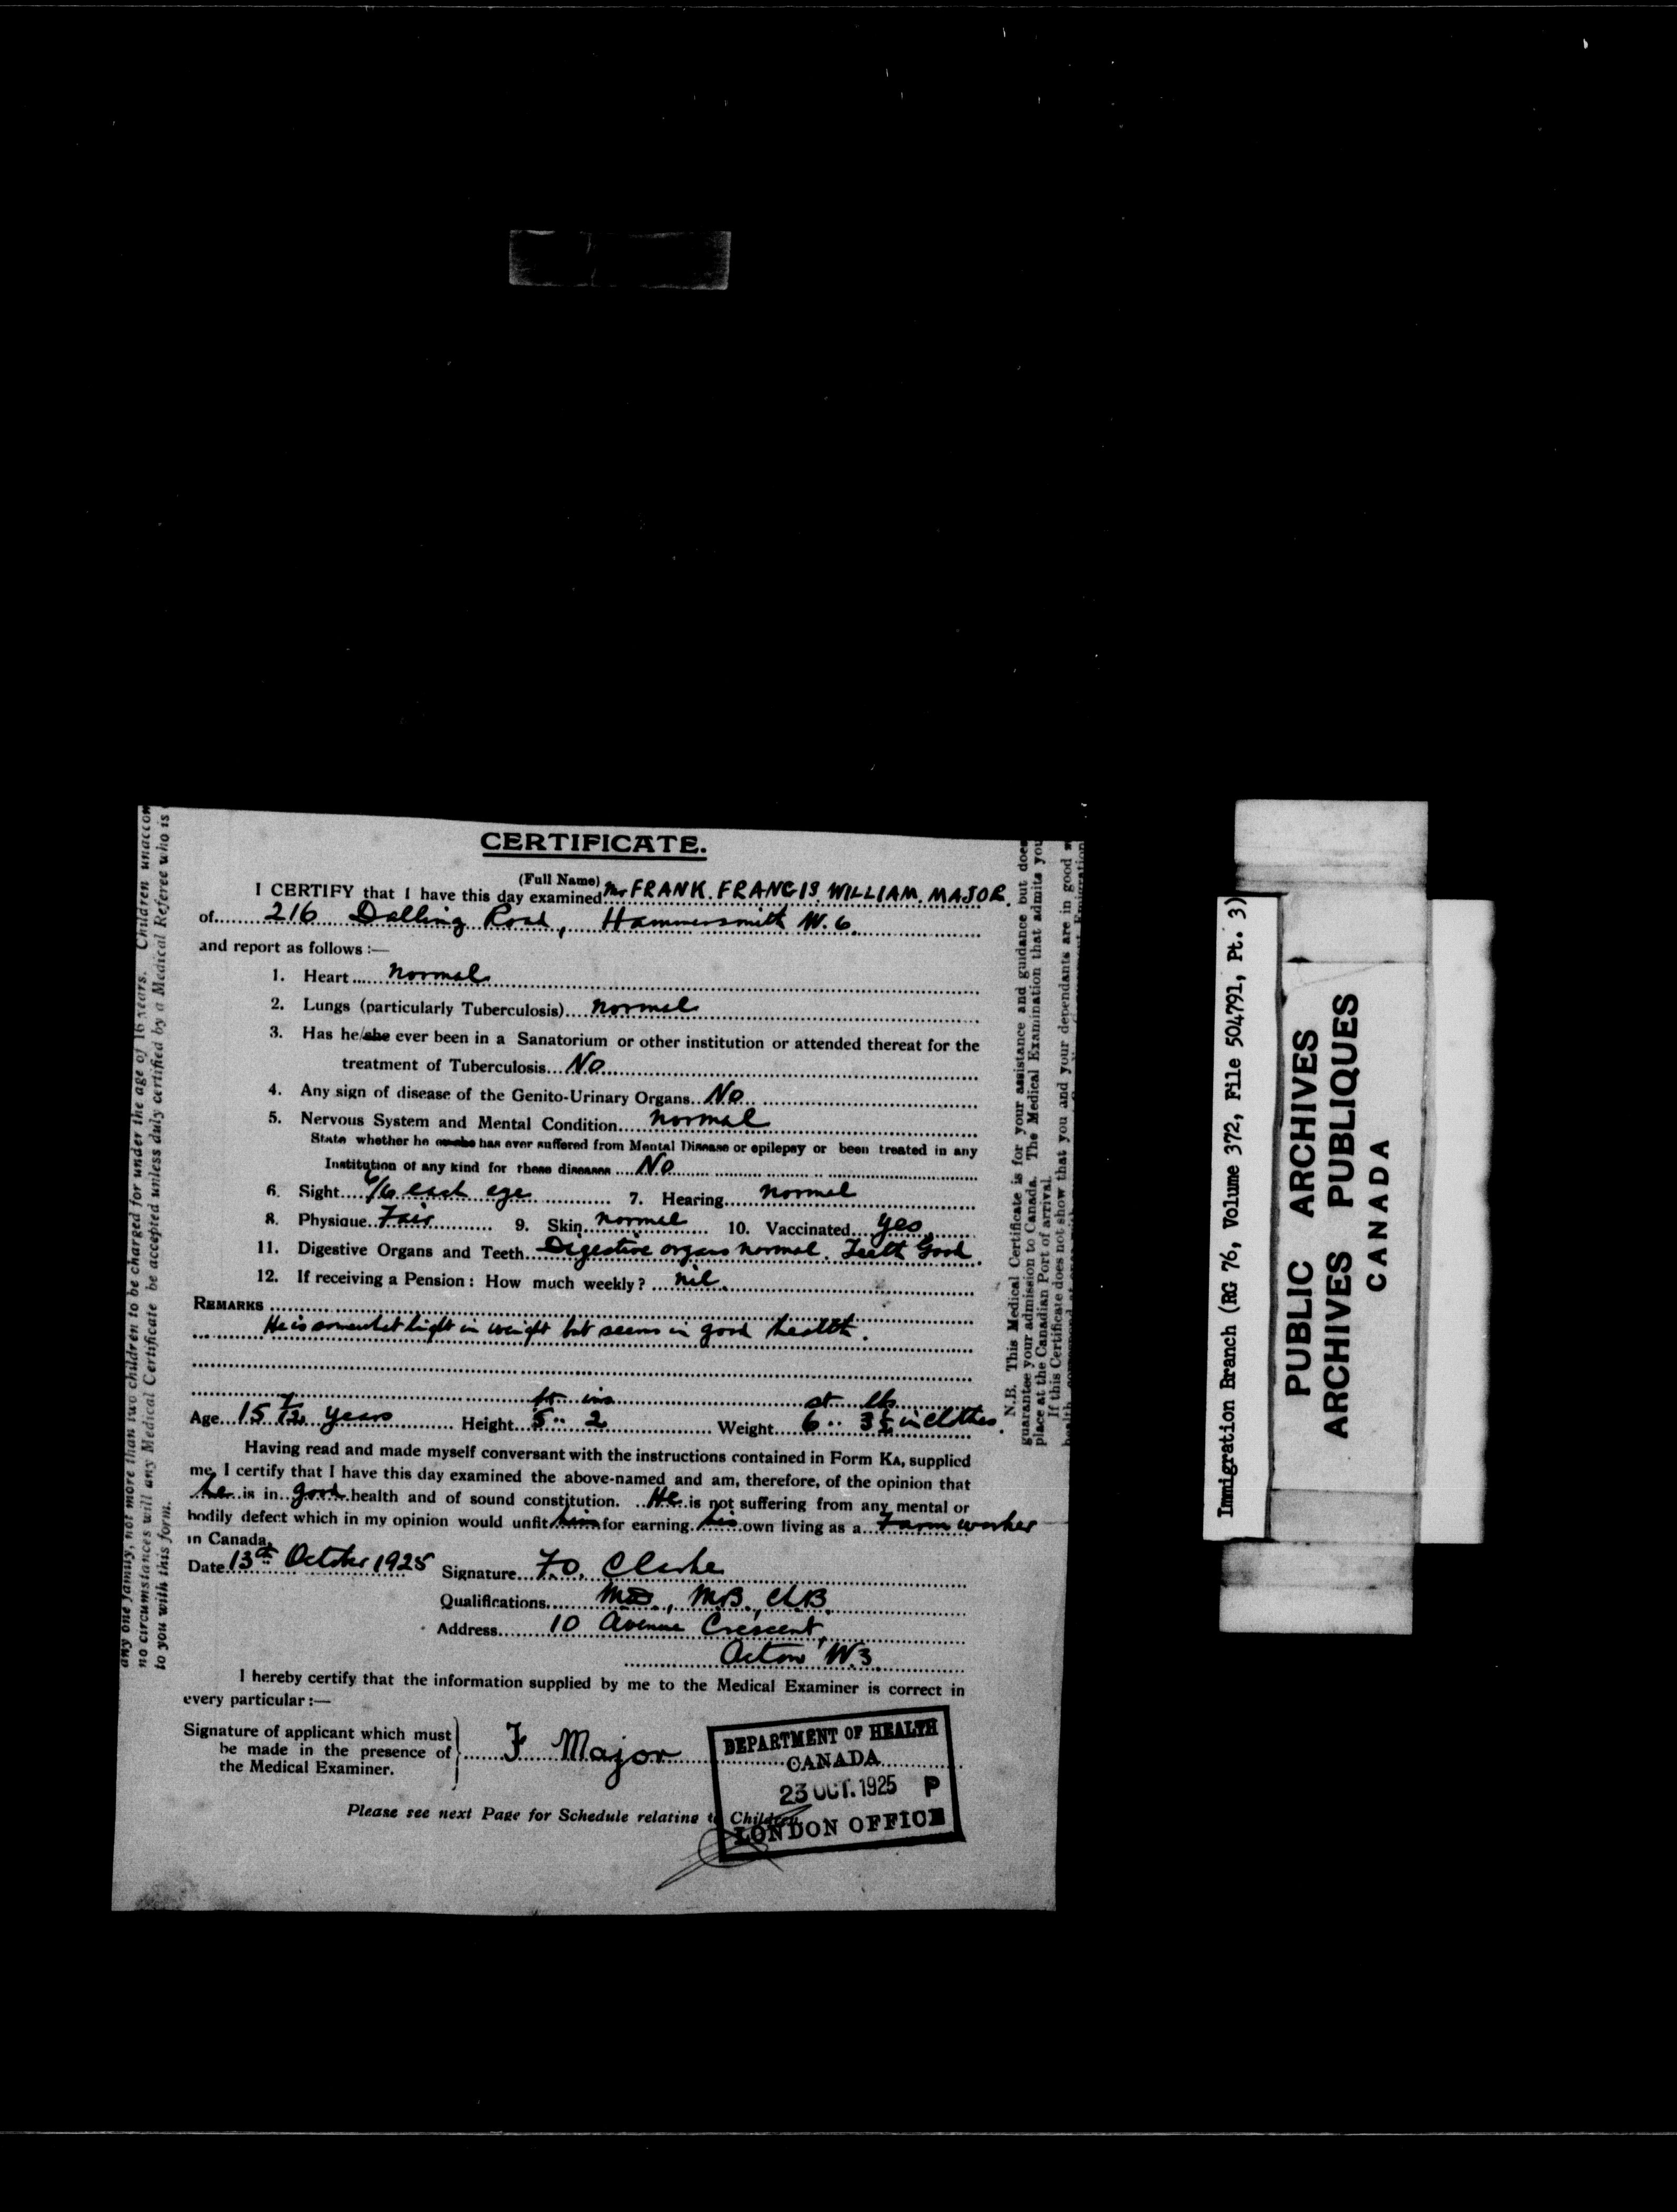 CERTIFICATE.
(Full Name)
I CERTIFY that I have this day examined Mr FRANK. FRANCIS. WILLIAM. MAJOR.
of 216 Dalling Road, Hammersmith W. 6.
and report as follows :—
1. Heart normal
2. Lungs (particularly Tuberculosis) normal
3. Has he/she ever been in a Sanatorium or other institution or attended thereat for the
treatment of Tuberculosis No
4. Any sign of disease of the Genito-Urinary Organs No
5. Nervous System and Mental Condition normal
State whether he or she has ever suffered from Mental Disease or epilepsy or been treated in any
Institution of any kind for these diseases No
6. Sight 6/6 each eye 7. Hearing normal
8. Physique Fair 9. Skin normal 10. Vaccinated yes
11. Digestive Organs and Teeth Digestive organs normal. Teeth Good
12. If receiving a Pension : How much weekly ? nil
REMARKS
He is somewhat light in weight but seems in good health.
ft ins st lbs
Age 15 7/12 years Height 5 .. 2 Weight 6 .. 3½ in clothes.
Having read and made myself conversant with the instructions contained in Form KA, supplied
me, I certify that I have this day examined the above-named and am, therefore, of the opinion that
he is in good health and of sound constitution. He is not suffering from any mental or
bodily defect which in my opinion would unfit him for earning his own living as a Farm worker
in Canada.
Date 13th October 1925 Signature F.O. Clarke
Qualifications M.B., Ch.B.
Address 10 Avenue Crescent,
Acton W.3.
I hereby certify that the information supplied by me to the Medical Examiner is correct in
every particular :—
Signature of applicant which must
be made in the presence of
the Medical Examiner.
F Major
DEPARTMENT OF HEALTH
CANADA
23 OCT. 1925 P
LONDON OFFICE
Please see next Page for Schedule relating to Children.
any one family, not more than two children to be charged for under the age of 16 years. Children unaccom
no circumstances will any Medical Certificate be accepted unless duly certified by a Medical Referee who is
to you with this form.
N.B. This Medical Certificate is for your assistance and guidance but does
guarantee your admission to Canada. The Medical Examination that admits you
place at the Canadian Port of arrival.
If this Certificate does not show that you and your dependants are in good
health
Immigration Branch (RG 76, Volume 372, File 504791, Pt. 3)
PUBLIC ARCHIVES
ARCHIVES PUBLIQUES
CANADA